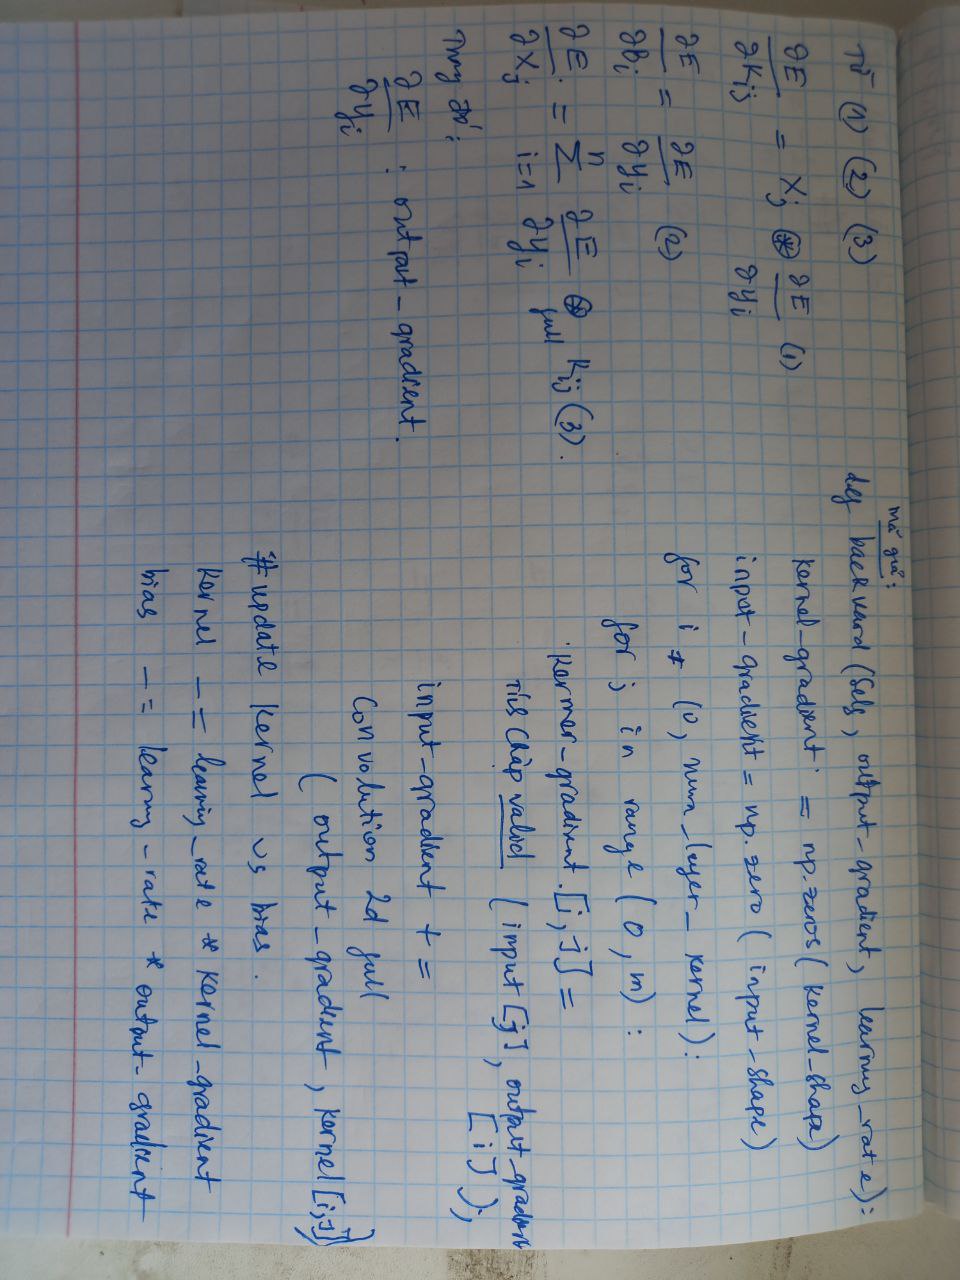 Từ (1) (2) (3)
∂E/∂Kij = Xj ⊛ ∂E/∂yi (1)
∂E/∂Bi = ∂E/∂yi (2)
∂E/∂Xj = n Σ i=1 ∂E/∂yi ⊛ full Kij (3).
Trong đó:
∂E/∂yi : output_gradient.
Mã giả:
def backward (self, output_gradient, learning_rate):
kernel_gradient = np.zeros( kernel_shape)
input_gradient = np.zero ( input_shape)
for i (0, num_layer_kernel):
for j in range ( 0, m) :
kermer_gradient.[i, j] =
Tích Chập valid ( input [j], output_gradient
[i] );
input_gradient + =
Convolution 2d full
( output_gradient, kernel [i,j])
# update kernel vs bias.
kernel -= learning_rate * kernel_gradient
bias -= learning_rate * output_gradient